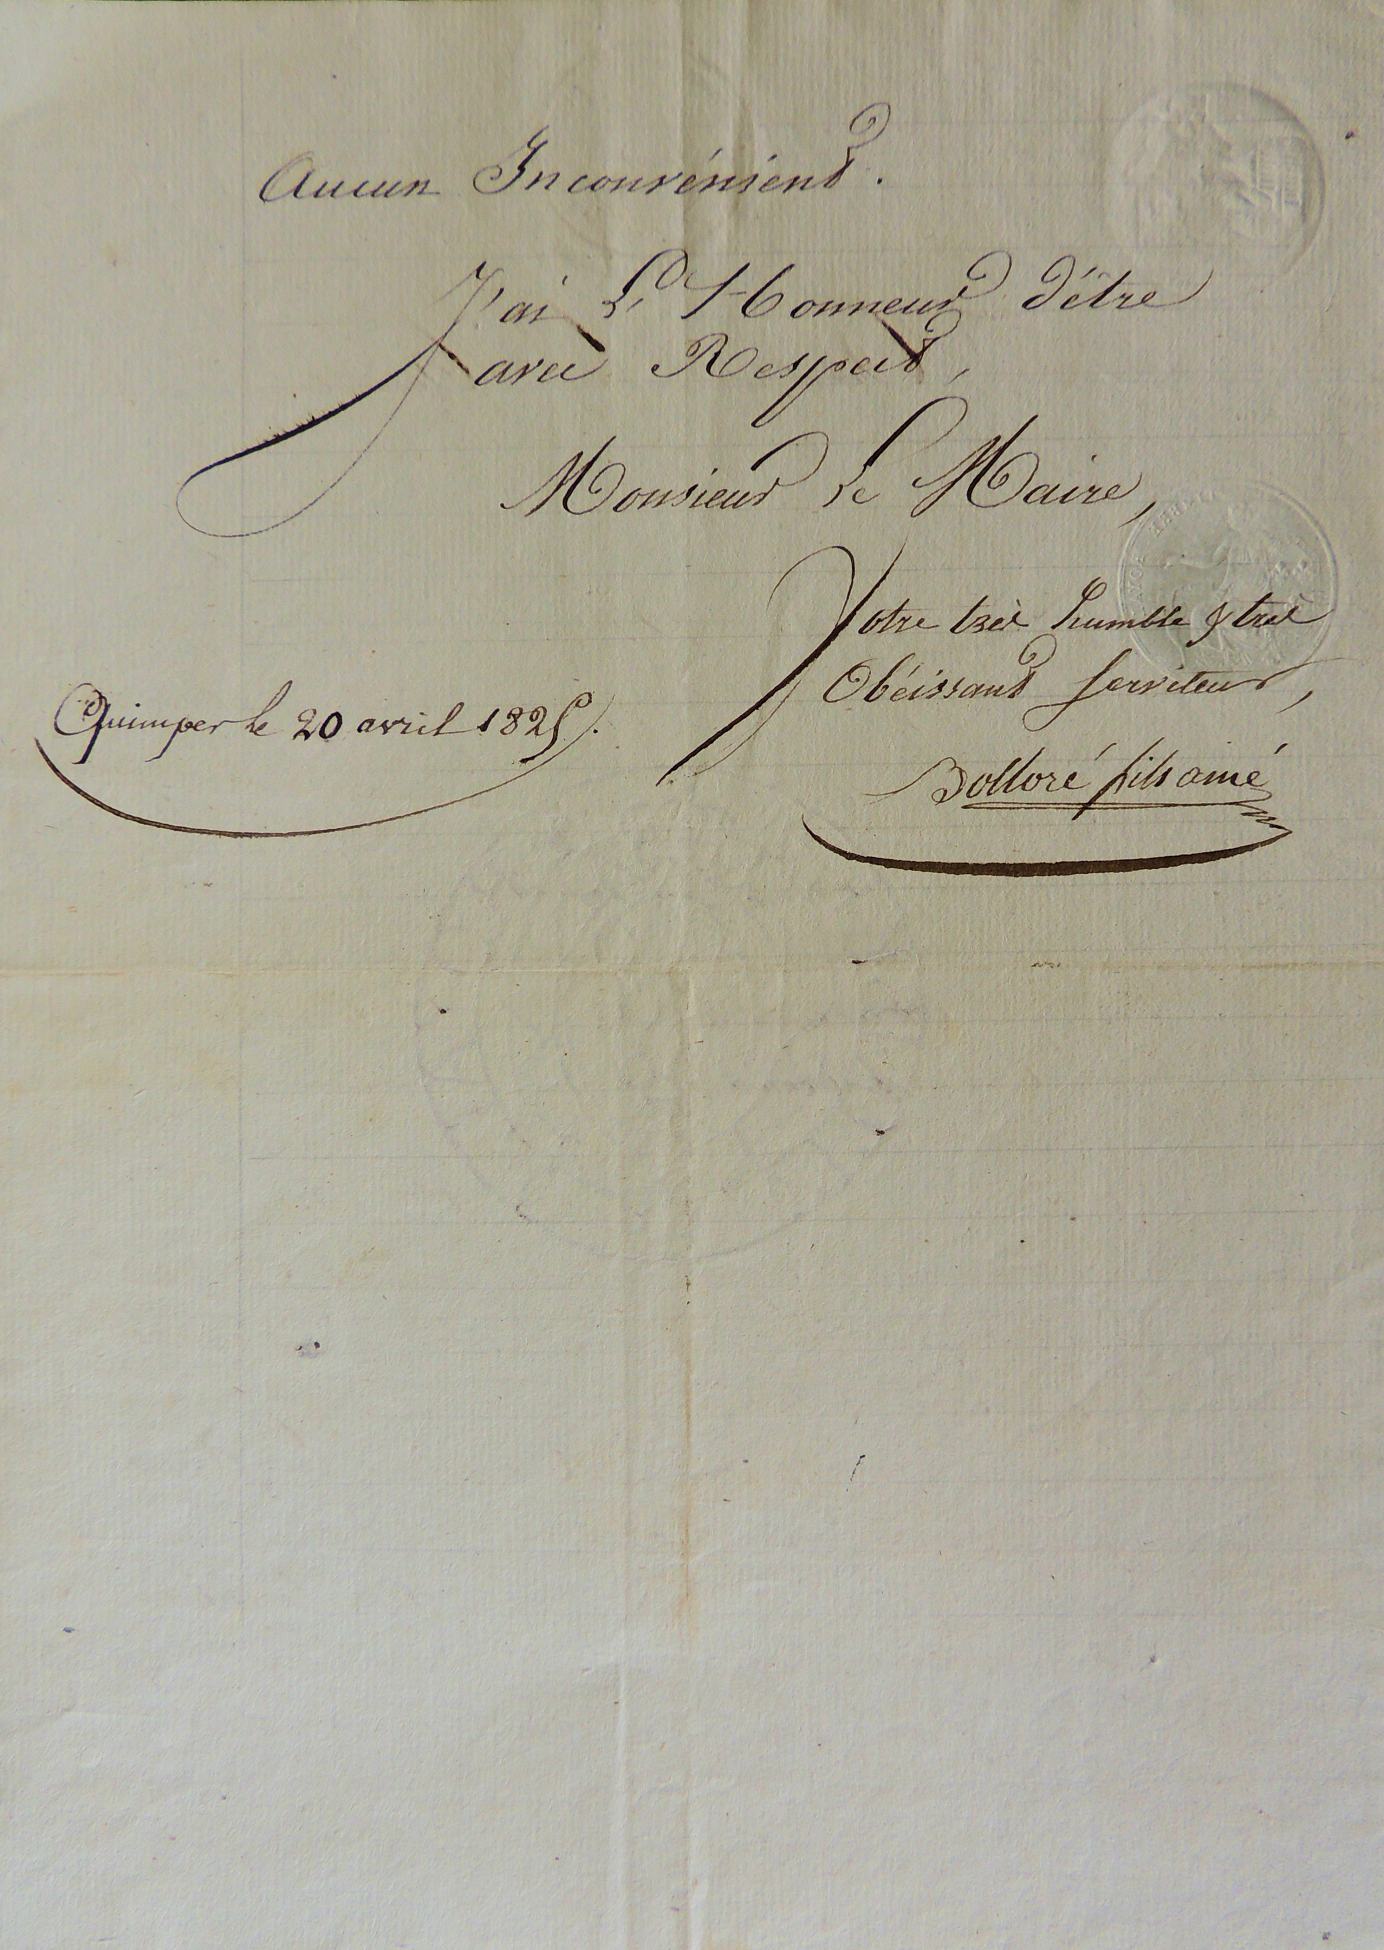 Aucun Inconvénient.
J'ai L'Honneur d'être
avec Respect,
Monsieur Le Maire,
Votre très humble & très
Obéissant serviteur,
Quimper le 20 avril 1825.
Bolloré fils ainé